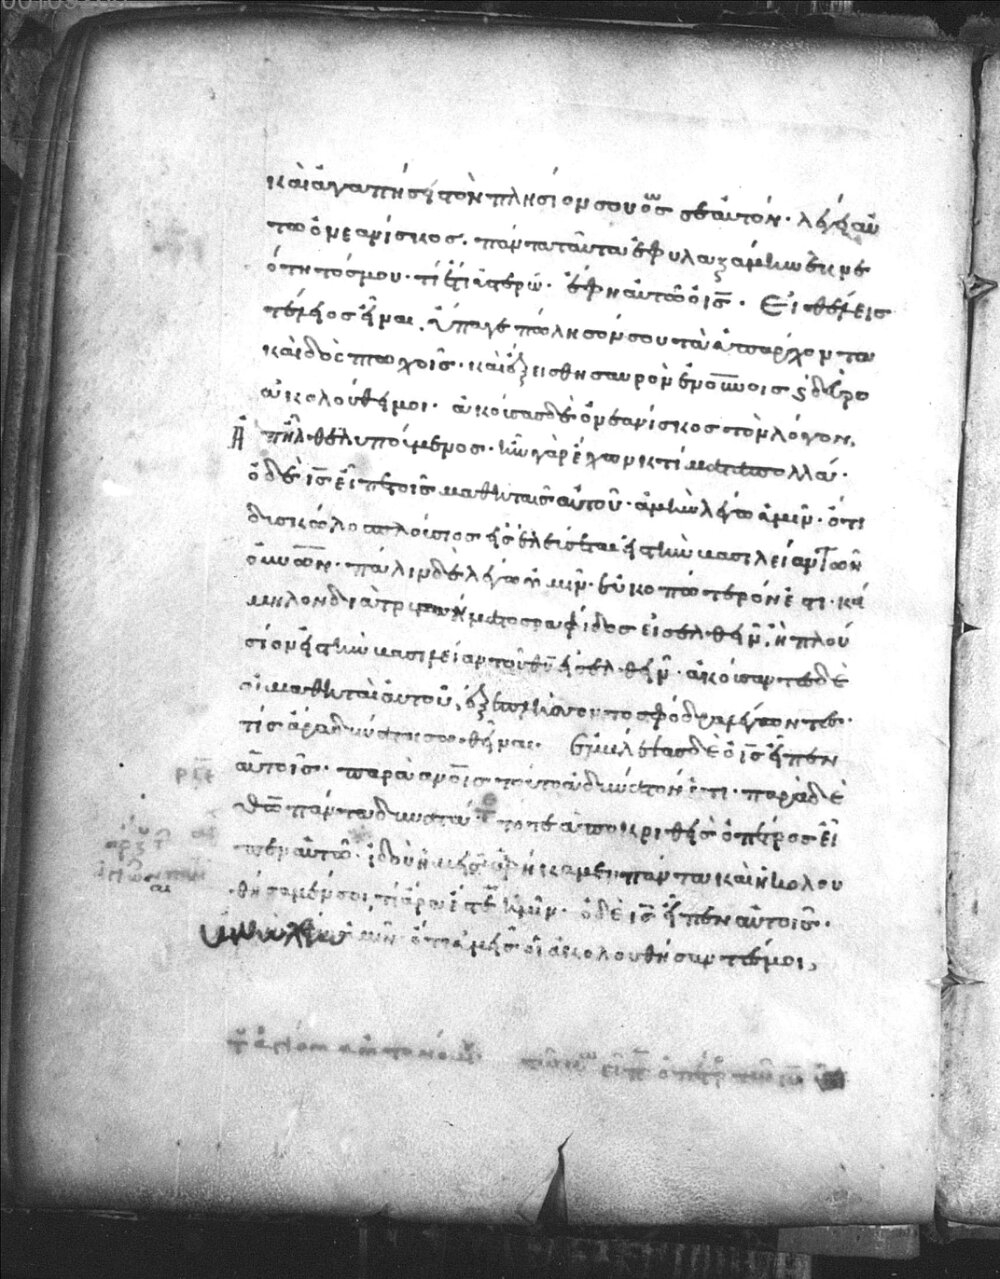 καὶ ἀγαπήσεις τὸν πλησίον σου ὡς σεαυτόν· λέγει αὐ
τῶ ὁ νεανίσκος· πάντα ταῦτα ἐφυλαξάμην ἐκ νε
ότητός μου· τί ἔτι ὑστερῶ· ἔφη αὐτῶ ὁ ις̅· Εἰ θέλεις
τέλειος εἶναι, ὕπαγε πώλησόν σου τὰ ὑπάρχοντα
καὶ δὸς πτωχοῖς· καὶ ἕξεις θησαυρὸν ἐν ουνοις ϗ δεῦρο
ἀκολούθει μοι· ἀκούσας δὲ ὁ νεανίσκος τὸν λόγον,
ἀπῆλθε λυπούμενος· ἦν γὰρ ἔχων κτήματα πολλά·
ὁ δὲ ις̅ εἶπε τοῖς μαθηταῖς αὐτοῦ· ἀμὴν λέγω ὑμῖν· ὅτι
δυσκόλως πλούσιος εἰσελεύσεται εἰς τὴν βασιλείαν τῶν
ουνων· πάλιν δὲ λέγω ὑμῖν· εὐκοπώτερόν ἐστι κά
μηλον διὰ τρυπήματος ραφίδος εἰσελθεῖν, ἢ πλού
σιον εἰς τὴν βασιλείαν τοῦ θυ εἰσελθεῖν· ἀκούσαντες δὲ
οἱ μαθηταὶ αὐτοῦ, ἐξεπλήσσοντο σφόδρα λέγοντες·
τίς ἄρα δύναται σωθῆναι· Ἐμβλέψας δὲ ὁ ις̅ εἶπεν
αὐτοῖς· παρὰ ανοις τοῦτο ἀδύνατόν ἐστι· παρὰ δὲ
θω πάντα δυνατά· τότε ἀποκριθεὶς ὁ πέτρος εἶ
πεν αὐτῶ· ἰδοὺ ἡμεῖς ἀφήκαμεν πάντα καὶ ἠκολου
θήσαμέν σοι, τί ἄρα ἔσται ἡμῖν· ὁ δὲ ις̅ εἶπεν αὐτοῖς·
ἀμὴν λέγω ὑμῖν· ὅτι ὑμεῖς οἱ ἀκολουθήσαντές μοι,